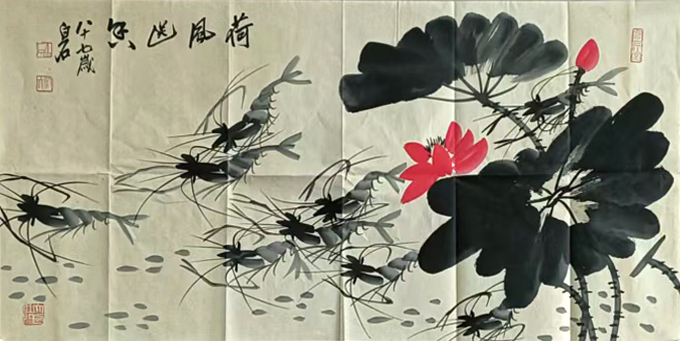 荷風送香
八十七歲
白石